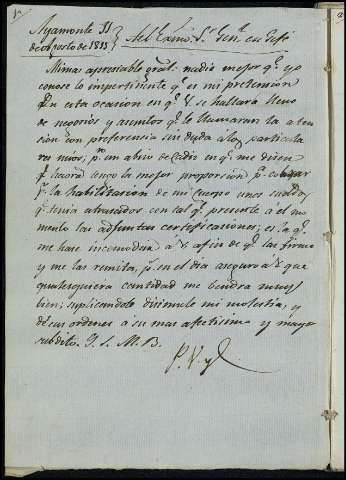 Ayamonte 31
de agosto de 1811
Al Exmo. Sr. Genl. en Gefe
Mi mas apreciable gral. nadie mejor qe. yo
conoce lo impertinente qe. es mi pretension
en esta ocasion en qe. V se hallará lleno
de negocios y asuntos qe. le llamaran la aten
sion con preferencia sin duda á los particula
res mios; pr. un abiso de Cadiz en qe. me dicen
qe. haora tengo la mejor proporsion pa. cobrar
pa. la habilitacion de mi cuerpo unos sueldos
qe. tenia atrasados con tal qe. presente á el mo
mento las adjuntas certificaciones; es la qe.
me hace incomodar á V á fin de qe. las firme
y me las remita, pr. en el dia aseguro á V que
qualesquiera cantidad me bendra muy
bien; suplicandole disimule mi molestia, y
dé sus ordenes á su mas afectisimo y mayor
subdito. Q. S. M. B.